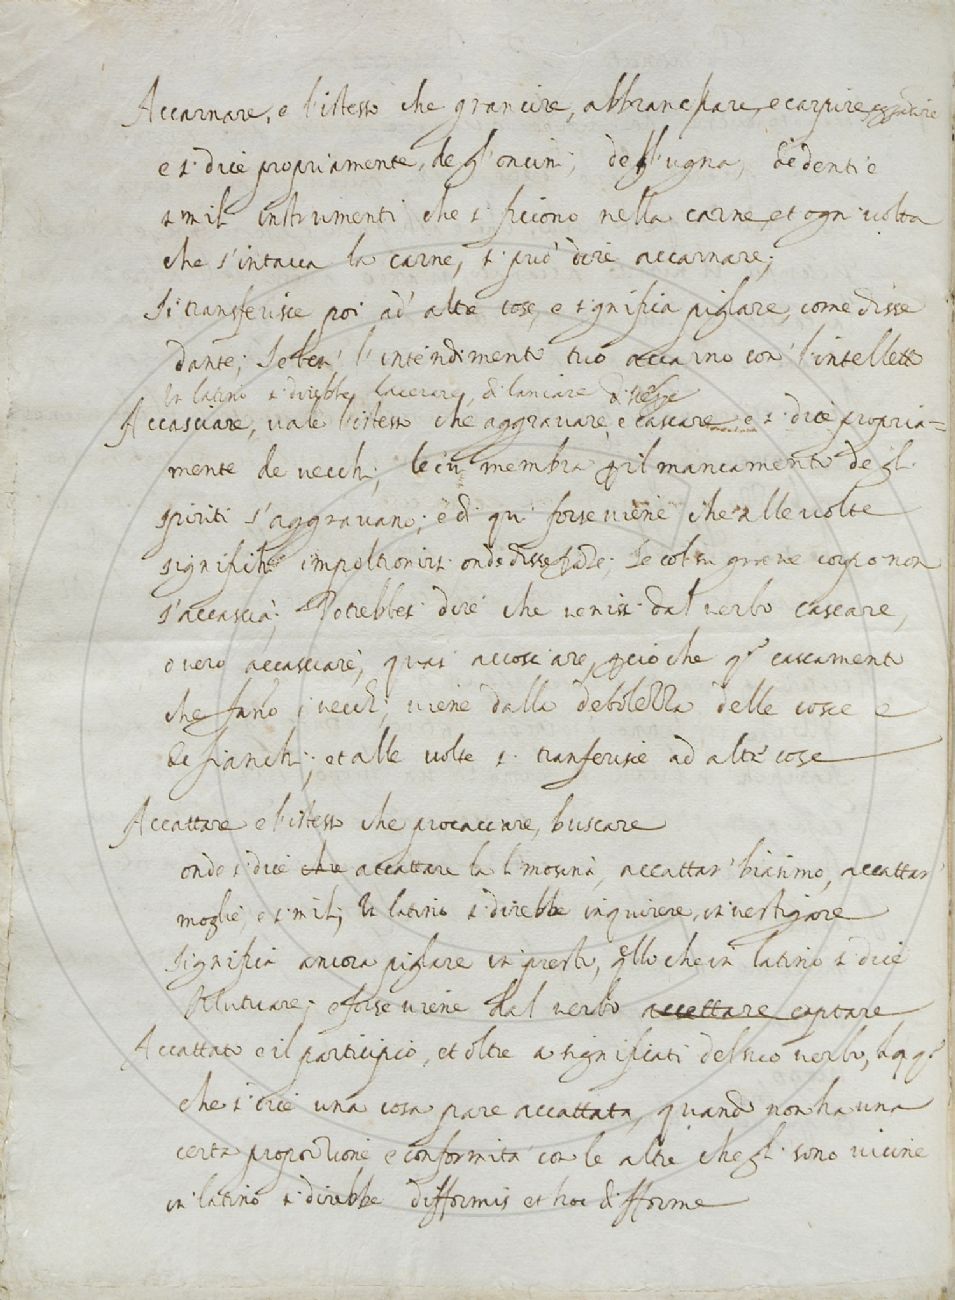 Accarnare, e l'istesso che grancire, abbranckare, e carpire
e si dice propriamente, de gl'oncini, dell'ugna, de denti e
simili instrumenti che si ficcono nella carne, et ogni volta
che s'intacca la carne, si può dire accarnare;
si transferisce poi ad' altre cose, e significa pigliare, come disse
dante; Se ben' l'intendimento tuo accarno con l'intelletto
In latino si direbbe, lacerare, dilaniare
Accasciare, vale l'istesso che aggravare, e cascare e si dice propria=
mente de vecchi, le cui membra per il mancamento de gli
spiriti s'aggravano; e di qui forse viene che alle volte
significhi impoltronirsi onde disse Dante; Se col suo grave corpo non
s'accascia; Potrebbesi dire che venissi dal verbo cascare,
overo accasciare, quasi accosciare, perciò che quel cascamento
che fano i vecchi, viene dalla debolezza delle coscie e
de fianchi; et alle volte si transferisce ad altre cose
Accattare e l'istesso che procacciare, buscare
onde si dice che accattare la limosina, accattar' biasimo, accattar'
moglie, e simili, In latino si direbbe inquirere, investigare
Significa ancora pigliare in presto, quello che in latino si dice
Mutuare; e forse viene dal verbo accettare captare
Accattato e il participio, et oltre a significati del suo verbo,
che si dice una cosa pare accattata, quando non ha una
certa proporzione e conformita con le altre che gli sono vicine
in latino si direbbe difformis et hoc difforme